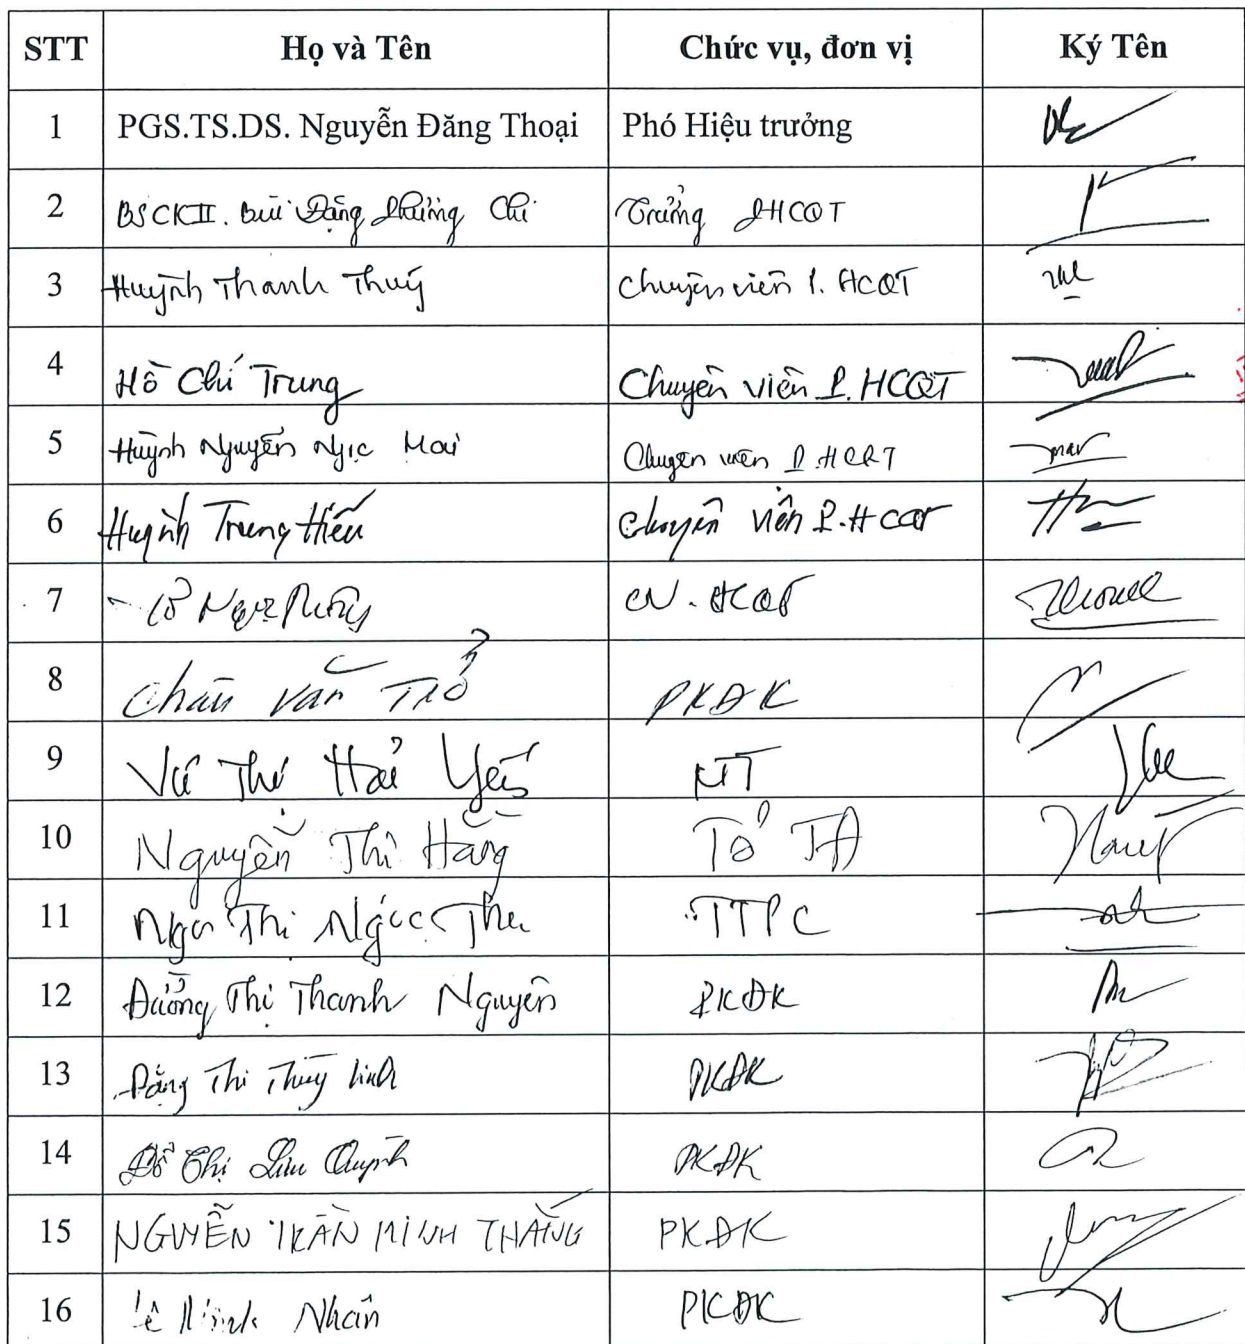 STT Họ và Tên Chức vụ, đơn vị Ký Tên
1 PGS.TS.DS. Nguyễn Đăng Thoại Phó Hiệu trưởng
2 BSCKII. Bùi Đặng Phương Chi Trưởng PHCQT
3 Huỳnh Thanh Thuý Chuyên viên P. HCQT
4 Hồ Chí Trung Chuyên viên P. HCQT
5 Huỳnh Nguyễn Ngọc Mai Chuyên viên P. HCQT
6 Huỳnh Trung Hiếu Chuyên viên P. HCQT
7 CV. HCQT
8 Châu Văn Trở PKĐK
9 Vũ Thị Hải Yến NT
10 Nguyễn Thị Hằng Tổ TA
11 Ngô Thị Ngọc Thu TTPC
12 Dương Thị Thanh Nguyên PKĐK
13 Đặng Thị Thùy Linh PKĐK
14 Đỗ Thị Lưu Quỳnh PKĐK
15 NGUYỄN TRẦN MINH THẮNG PKĐK
16 Lê Minh Nhân PKĐK